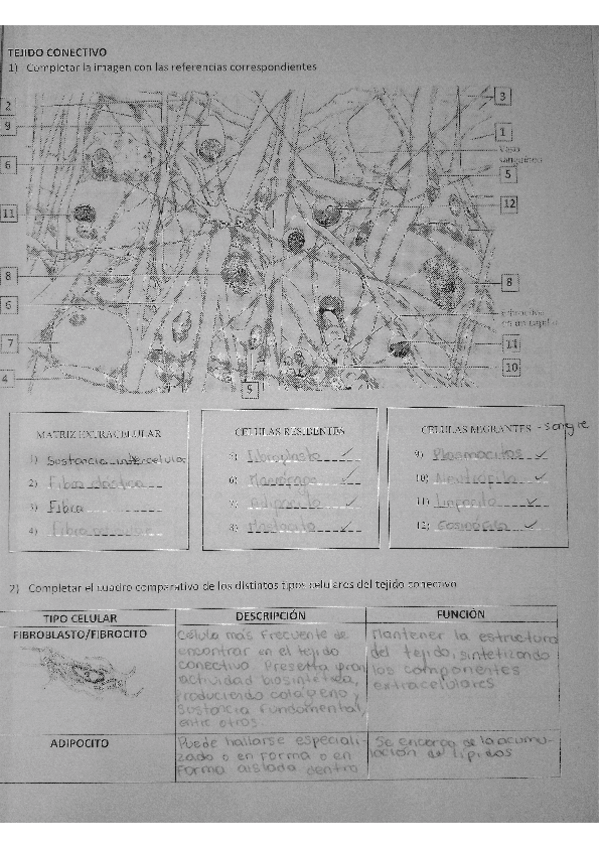 TEJIDO CONECTIVO
1) Completar la imagen con las referencias correspondientes
2
9
6
11
8
6
7
4
5
3
1
Vaso
sanguíneo
5
12
8
en un capilar
11
10
MATRIZ EXTRACELULAR
1) Sustancia intercelular
2) Fibra elástica
3) Fibra
4) Fibra reticular
CÉLULAS RESIDENTES
5) Fibroblasto ✓
6) Macrófago ✓
7) Adipocito ✓
8) Mastocito ✓
CÉLULAS MIGRANTES - sangre
9) Plasmocitos ✓
10) Neutrófilo ✓
11) Linfocito ✓
12) Eosinófilo ✓
2) Completar el cuadro comparativo de los distintos tipos celulares del tejido conectivo
TIPO CELULAR
DESCRIPCIÓN
FUNCIÓN
FIBROBLASTO/FIBROCITO
Célula más frecuente de
encontrar en el tejido
conectivo. Presenta gran
actividad biosintética,
produciendo colágeno y
sustancia fundamental,
entre otros.
Mantener la estructura
del tejido, sintetizando
los componentes
extracelulares
ADIPOCITO
Puede hallarse especiali-
zado o en forma o en
forma aislada dentro
Se encarga de la acumu-
lación de lípidos